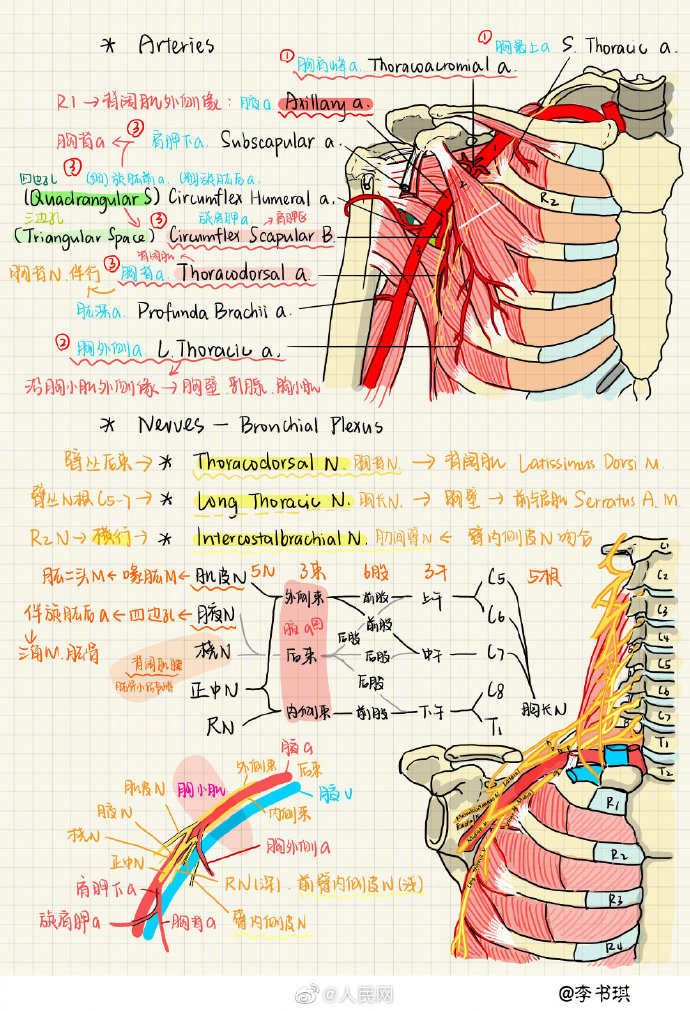 * Arteries
① 胸肩峰a. Thoracoacromial a.
① 胸最上a S. Thoracic a.
R1 → 背阔肌外侧缘: 腋a Axillary a.
胸背a ← ③ 肩胛下a. Subscapular a.
四边孔 ③ 旋肱前a. 旋肱后a.
(Quadrangular S) Circumflex Humeral a.
三边孔 旋肩胛a. → 肩胛区
(Triangular Space) ③ Circumflex Scapular B.
背阔肌
胸背N. 伴行 ③ 胸背a. Thoracodorsal a.
肱深a. Profunda Brachii a.
② 胸外侧a L.Thoracic a.
沿胸小肌外侧缘 → 胸壁.乳腺.胸小肌
R2
* Nerves — Bronchial Plexus
臂丛后束 → * Thoracodorsal N. 胸背N. → 背阔肌 Latissimus Dorsi M.
臂丛N根 C5-7 → * Long Thoracic N. 胸长N. → 胸壁 → 前锯肌 Serratus A. M.
R2N → 横行 → * Intercostalbrachial N. 肋间臂N ← 臂内侧皮N吻合
肱二头M ← 喙肱M ← 肌皮N 5N 3束 6股 3干 C5 5根
外侧束 前股 上干
伴旋肱后a ← 四边孔 ← 腋N 腋a 前股 C6
三角M. 肱骨 桡N 后束 后股 后股 中干 C7
背阔肌腱
后股
正中N C8 胸长N
RN 内侧束 前股 下干 T1
C1
C2
C3
C4
C5
C6
C7
T1
T2
腋a
外侧束 后束
肌皮N 胸小肌 腋V
腋N 内侧束
桡N 胸外侧a
正中N RN(深). 前臂内侧皮N(浅)
肩胛下a
旋肩胛a 胸背a 臂内侧皮N
R1
R2
R3
R4
@人民网
@李书琪